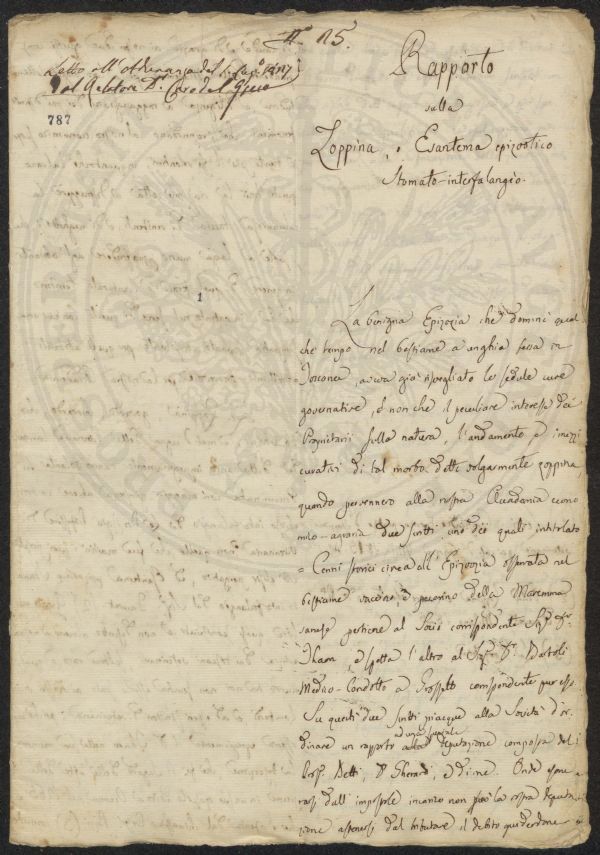 N. 15.
Letto all'Adunanza del
Dal Relatore Dr.
787
1
Rapporto
sulla
Zoppina, o Esantema epizootico
Stomato-interfalangeo.
La benigna Epizozia che dominò qual
che tempo nel bestiame a unghia fessa in
Toscana, aveva già risvegliato le sedule cure
governative, e non che il peculiare interesse dei
Proprietarii sulla natura, l'andamento e i mezzi
curativi di tal morbo detto volgarmente zoppina,
quando pervennero alla nostra Accademia econo
mico-agraria due scritti, uno dei quali intitolato
= Cenni storici circa all'Epizoozia osservata nel
bestiame vaccino e pecorino della Maremma
sanese pertiene al Socio corrispondente Sigr. Dr.
e spetta l'altro al Sigr. Dr. Bartoli
Medico-Condotto a Grosseto corrispondente pur esso.
Su questi due scritti piacque alla Società d'or
dinare un rapporto ad una speciale deputazione composta del
Prof. Betti, Dr. Gherardi, e di me. Onde
dall' incarico non può la vostra deputa
zione astenersi dal tributare il debito guiderdone